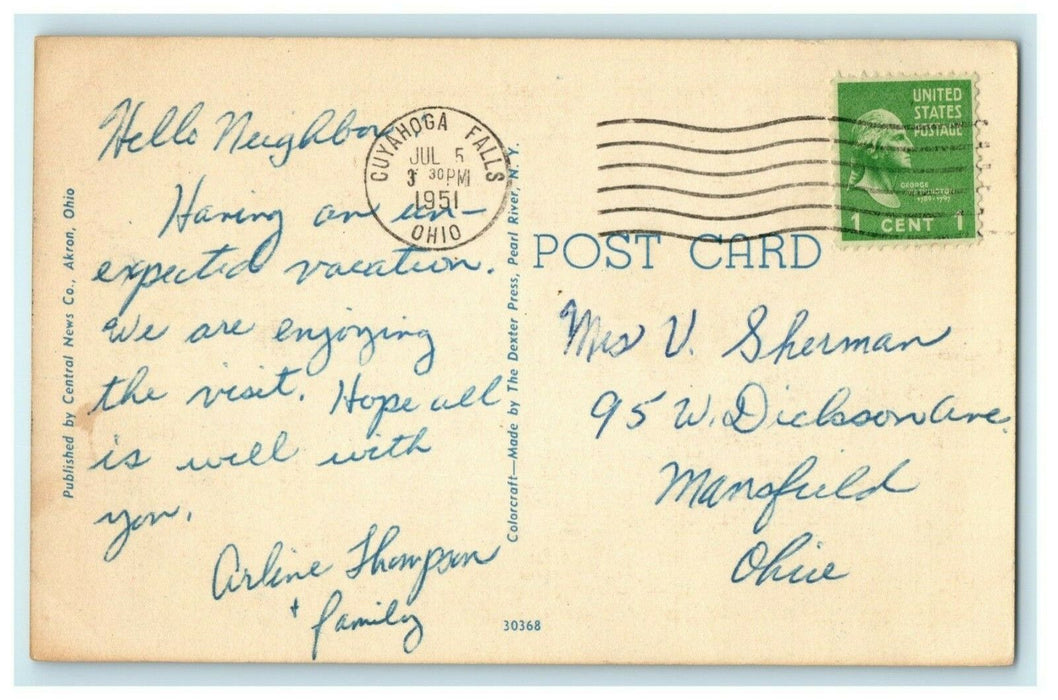 Hello Neighbor,
Having an un-
expected vacation.
We are enjoying
the visit. Hope all
is well with
you.
Arline Thompson
+ family
Published by Central News Co., Akron, Ohio
CUYAHOGA FALLS
JUL 5
3 30 PM
1951
OHIO
Colorcraft—Made by The Dexter Press, Pearl River, N. Y.
30368
UNITED
STATES
POSTAGE
GEORGE
WASHINGTON
1789-1797
1 CENT 1
POST CARD
Mrs V. Sherman
95 W. Dickson Ave.
Mansfield
Ohio